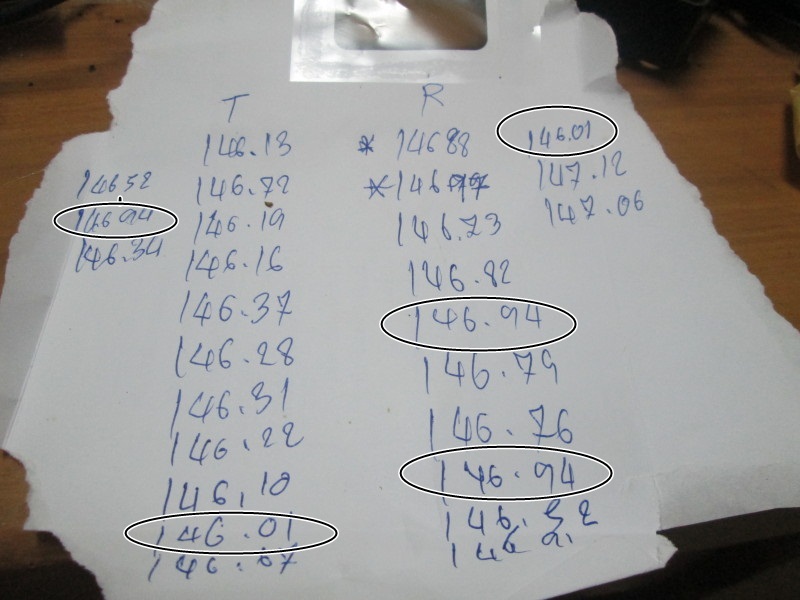 T R
146.13 * 14688 146.01
14652 146.72 147.12
14694 146.19 146.73 147.06
146.34 146.16 146.82
146.37 146.94
146.28 146.79
146.31 146.76
146.22 146.94
146.10 146.52
146.01
146.07